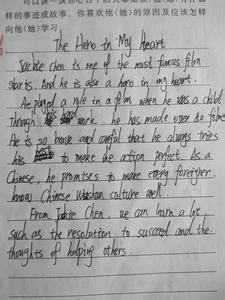 的事迹或故事。你喜欢他(她)的原因及应该怎样
向他(她)学习
The Hero in My Heart
Jackie Chen is one of the most famous film
stars. And he is also a hero in my heart.
He played a role in a film when he was a child
Through his hard work. he has made over 80 films
He is so brave and careful that he always tries
his best to make the action perfect. As a
Chinese, he promises to make every foreigner
know Chinese Wushu culture well.
From Jackie Chen, we can learn a lot,
such as the resolution to succeed and the
thoughts of helping others.